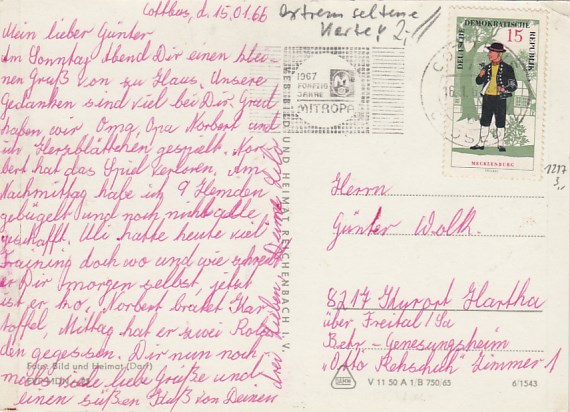 Cottbus, d. 15.01.66
Mein lieber Günter
Am Sonntag Abend Dir einen klei-
nen Gruß von zu Haus. Unsere
Gedanken sind viel bei Dir. Grad
haben wir Oma, Opa Norbert und
ich Herzblättchen gespielt. Nor-
bert hat das Spiel verloren. Am
Nachmittag habe ich 9 Hemden
gebügelt und noch nicht alle
geschafft. Uli hatte heute viel
Training doch wo und wie schreibt
er Dir morgen selbst, jetzt
ist er k.o., Norbert bratet Kar-
toffel, Mittag hat er zwei
gegessen. Dir nun noch-
mals viele liebe Grüße und
einen süßen Kuß von Deinen
drei Lieben Deine
Foto: Bild und Heimat (Darr)
extrem seltene
Marke
1967
FÜNFZIG
JAHRE
MITROPA
DEUTSCHE DEMOKRATISCHE REPUBLIK
15
MECKLENBURG
1217
3,-
VEB BILD UND HEIMAT REICHENBACH I. V.
Herrn
Günter Wolk.
8217 Kurort Hartha
über Freital/Sa
Betr.-Genesungsheim
"Otto Rehschuh" Zimmer 1
V 11 50 A 1/B 750/65
6/1543